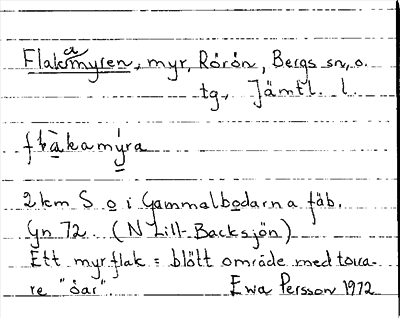 Flakamyren, myr, Rörön, Bergs sn, o.
tg, Jämtl. l.
flàkamýra
2 km S o i Gammalbodarna fäb.
Gn 72. (N Lill-Backsjön)
Ett myrflak = blött område med torra-
re "öar".
Ewa Persson 1972